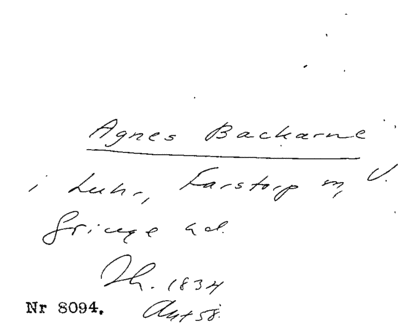 Agnes Backarne
i Luhr, Farstorp m, V.
Göinge hd.
Th. 1834
Nr 8094. Ant 58.